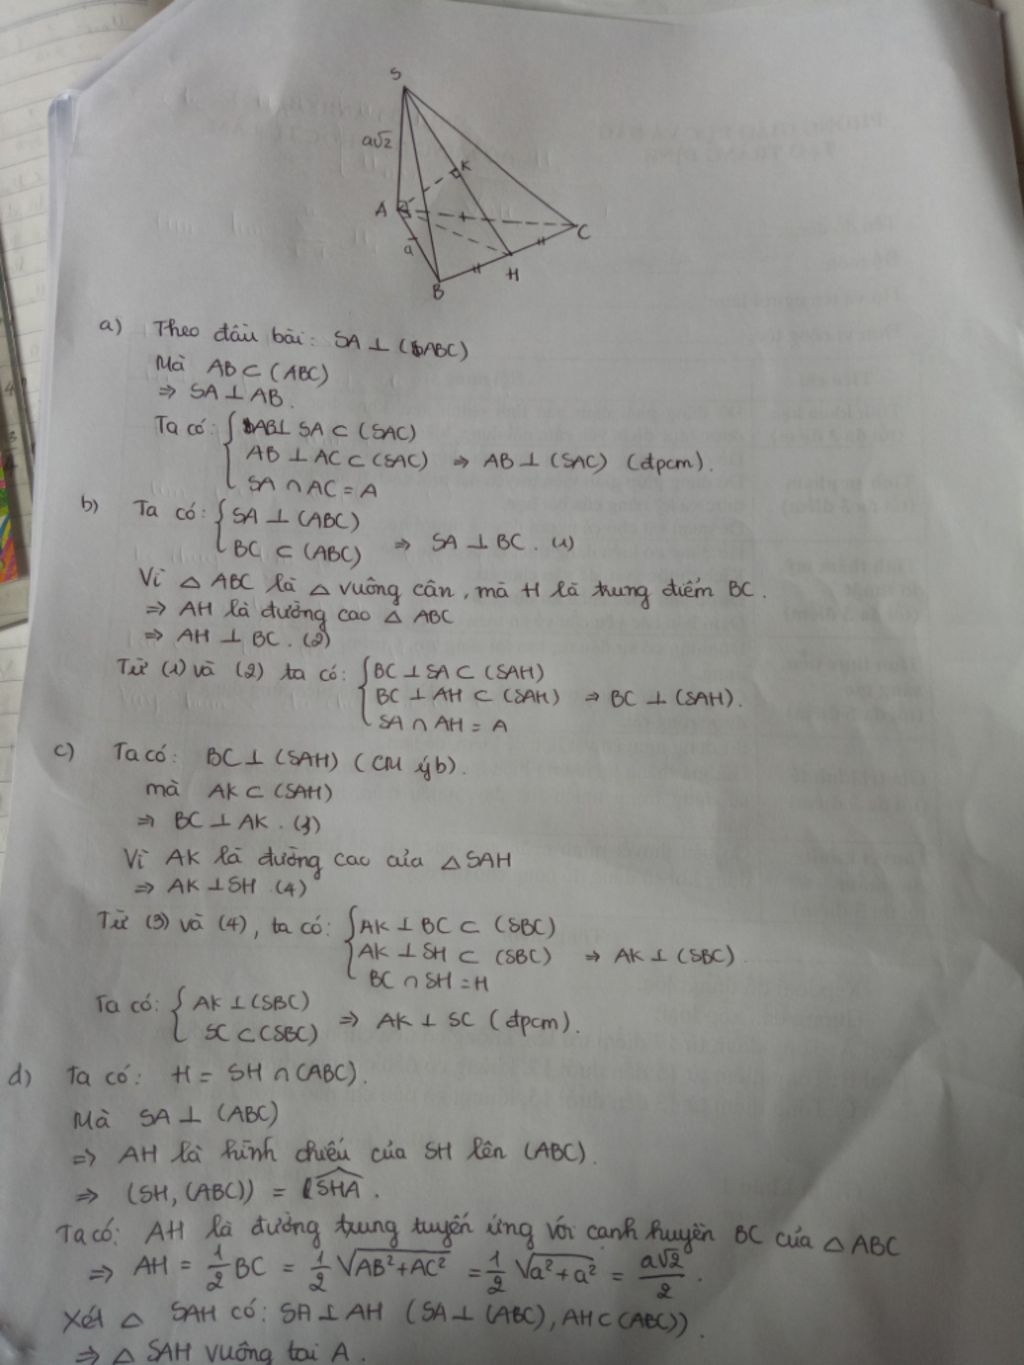 S
a√2
K
A
C
a
H
B
a) Theo đầu bài: SA ⊥ (ABC)
Mà AB ⊂ (ABC)
⇒ SA ⊥ AB.
Ta có: { AB ⊥ SA ⊂ (SAC)
AB ⊥ AC ⊂ (SAC) ⇒ AB ⊥ (SAC) (đpcm).
SA ∩ AC = A
b) Ta có: { SA ⊥ (ABC)
BC ⊂ (ABC) ⇒ SA ⊥ BC. (1)
Vì △ ABC là △ vuông cân, mà H là trung điểm BC.
⇒ AH là đường cao △ ABC
⇒ AH ⊥ BC. (2)
Từ (1) và (2) ta có: { BC ⊥ SA ⊂ (SAH)
BC ⊥ AH ⊂ (SAH) ⇒ BC ⊥ (SAH).
SA ∩ AH = A
c) Ta có: BC ⊥ (SAH) (CM ý b).
mà AK ⊂ (SAH)
⇒ BC ⊥ AK. (3)
Vì AK là đường cao của △ SAH
⇒ AK ⊥ SH (4)
Từ (3) và (4), ta có: { AK ⊥ BC ⊂ (SBC)
AK ⊥ SH ⊂ (SBC) ⇒ AK ⊥ (SBC)
BC ∩ SH = H
Ta có: { AK ⊥ (SBC)
SC ⊂ (SBC) ⇒ AK ⊥ SC (đpcm).
d) Ta có: H = SH ∩ (ABC).
Mà SA ⊥ (ABC)
⇒ AH là hình chiếu của SH lên (ABC).
⇒ (SH, (ABC)) = SHA.
Ta có: AH là đường trung tuyến ứng với cạnh huyền BC của △ ABC
⇒ AH = 1/2 BC = 1/2 √(AB² + AC²) = 1/2 √(a² + a²) = a√2/2.
Xét △ SAH có: SA ⊥ AH (SA ⊥ (ABC), AH ⊂ (ABC)).
⇒ △ SAH vuông tại A.